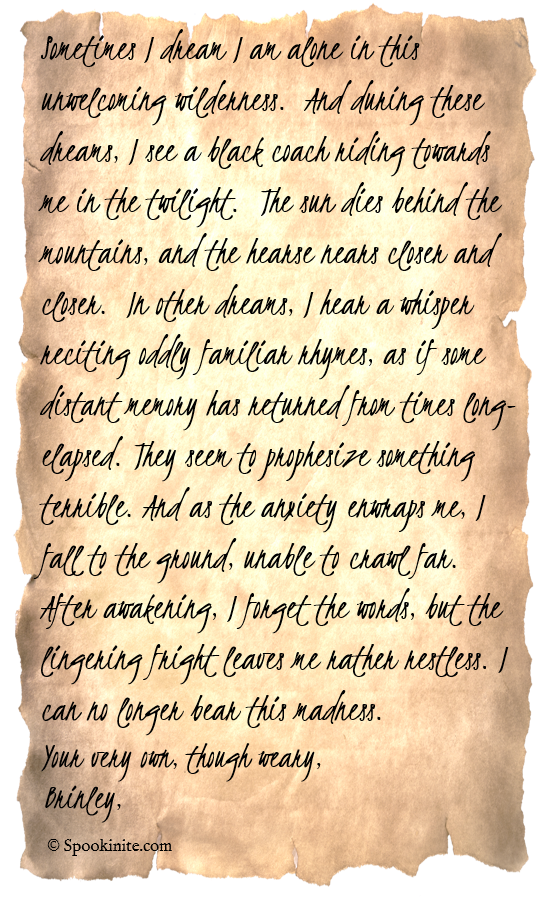 Sometimes I dream I am alone in this
unwelcoming wilderness. And during these
dreams, I see a black coach riding towards
me in the twilight. The sun dies behind the
mountains, and the hearse nears closer and
closer. In other dreams, I hear a whisper
reciting oddly familiar rhymes, as if some
distant memory has returned from times long-
elapsed. They seem to prophesize something
terrible. And as the anxiety enwraps me, I
fall to the ground, unable to crawl far.
After awakening, I forget the words, but the
lingering fright leaves me rather restless. I
can no longer bear this madness.
Your very own, though weary,
Brinley,
© Spookinite.com